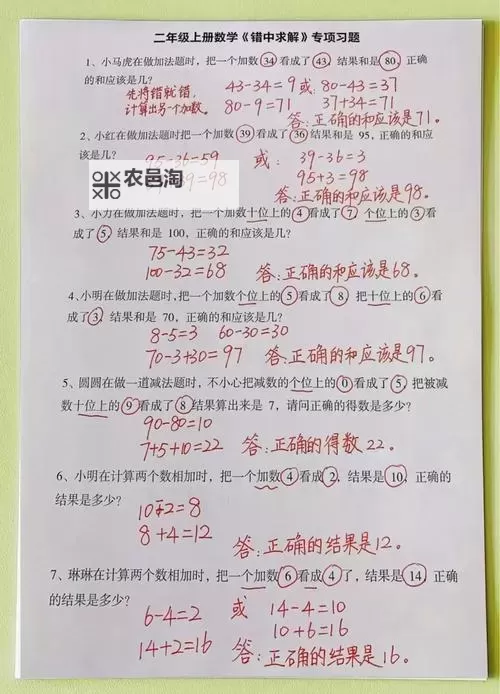 二年级上册数学《错中求解》专项习题
1、小马虎在做加法题时，把一个加数34看成了43，结果和是80，正确
的和应该是几？
先将错就错，
计算出另一个加数。
43-34=9 或： 80-43=37
80-9=71 37+34=71
答：正确的和应该是71。
2、小红在做加法题时把一个加数39看成了36结果和是 95，正确的和应
该是几？
95-36=59 或： 39-36=3
39=98 95+3=98
农邑淘
答：正确的和应该是98。
3、小力在做加法题时，把一个加数十位上的4看成了7 个位上的3看
成了5 结果和是 100，正确的和应该是几？
75-43=32
100-32=68 答：正确的和应该是68。
4、小明在做加法题时，把一个加数个位上的5看成了8 把十位上的6看
成了3，结果和是 70，正确的和应该是几？
8-5=3 60-30=30
70-3+30=97 答：正确的和应该是97。
5、圆圆在做一道减法题时，不小心把减数的个位上的0看成了5 把被减
数十位上的9看成了8结果算出来是 7，请问正确的得数是多少？
90-80=10
7+5+10=22 答：正确的得数22。
6、小明在计算两个数相加时，把一个加数4看成2，结果是10，正确的
结果是多少？
10-2=8
8+4=12
答：正确的结果是12。
7、琳琳在计算两个数相加时，把一个加数6看成4了，结果是14，正确
的结果是多少？
6-4=2 或 14-4=10
14+2=16 10+6=16
答：正确的结果是16。